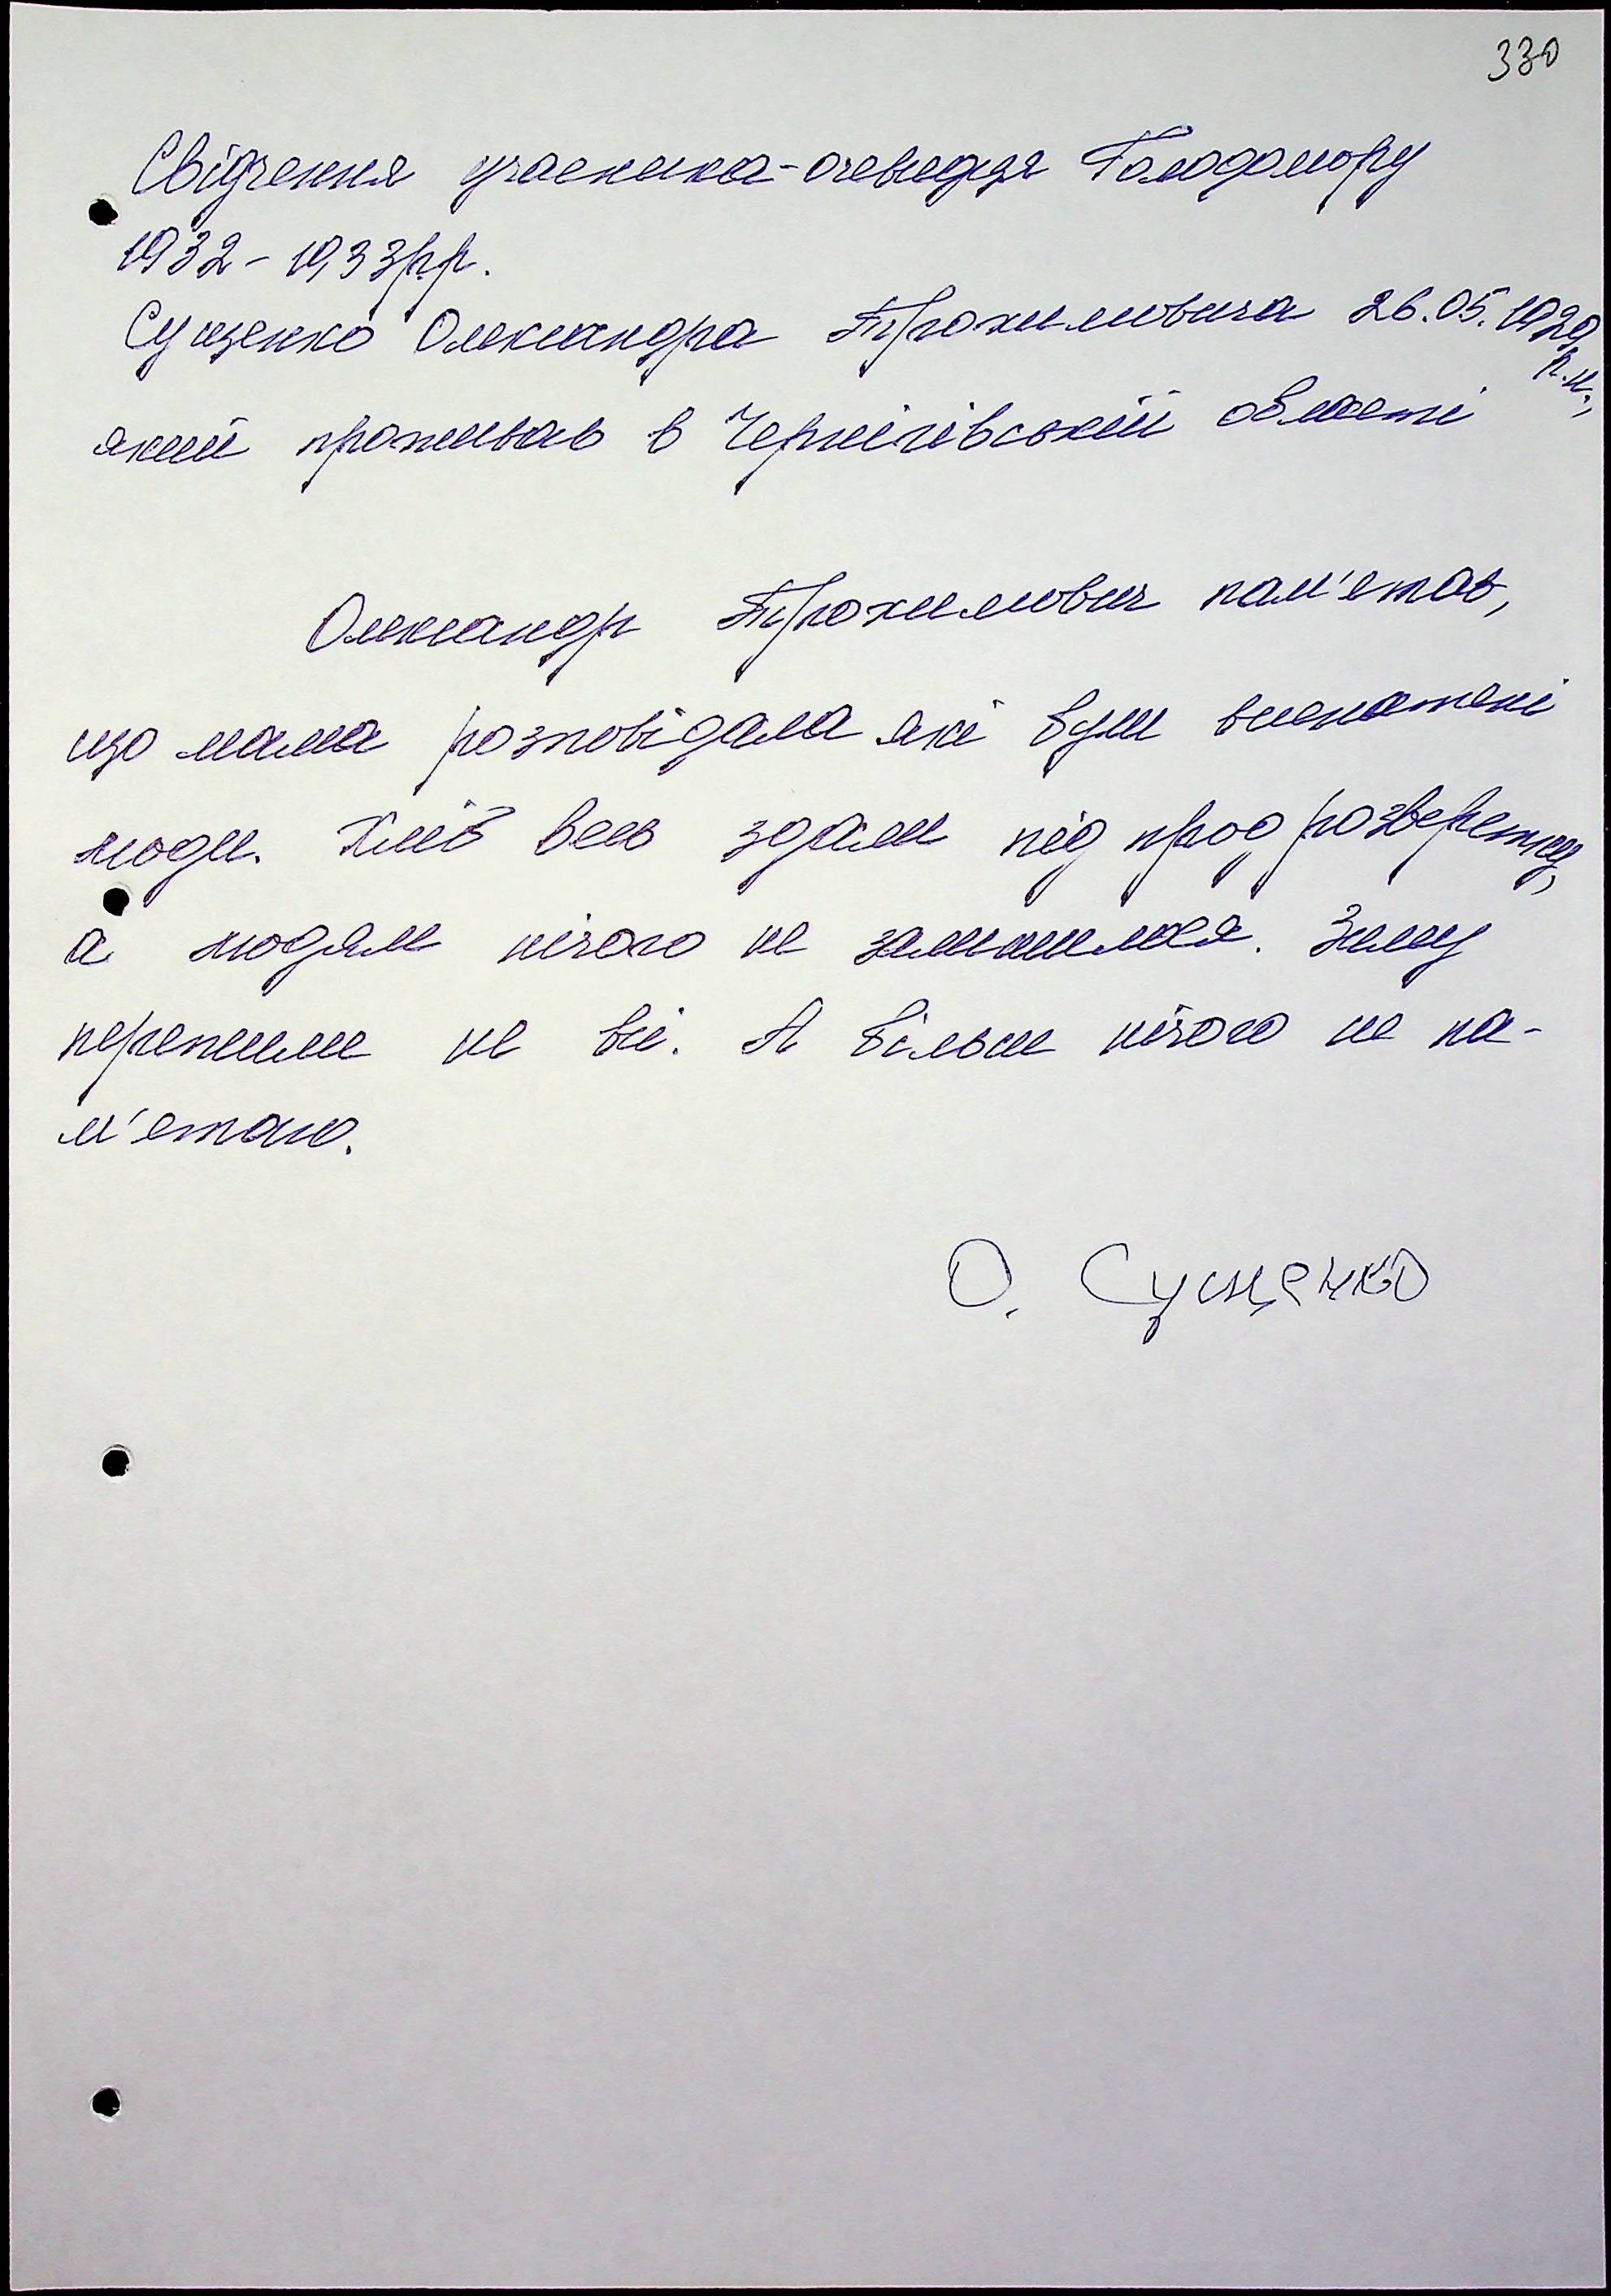 330
Свідчення учасника-очевидця Голодомору
1932-1933 рр.
Сущенко Олександра Трохимовича 26.05.1929
р.н.,
який проживав в Чернігівській області
Олександр Трохимович пам'етав,
що мама розповідала які були виснажені
люди. Хліб весь здали під прод розверстку,
а людям нічого не залишилося. Зиму
пережили не всі. А більше нічого не па-
м'етаю.
О. Сущенко